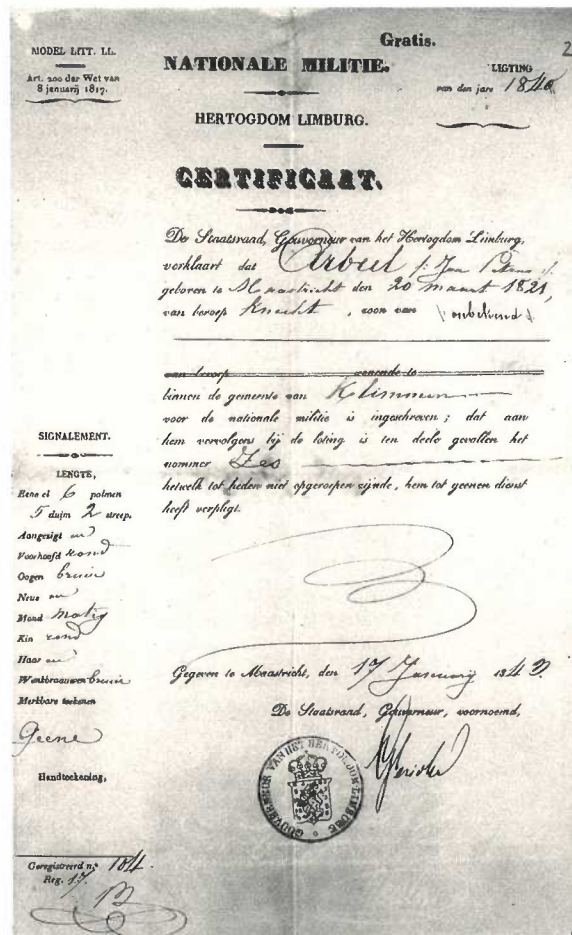 Gratis.
2
MODEL LITT. LL.
Art. 200 der Wet van
8 januarij 1817.
NATIONALE MILITIE.
LIGTING
van den jare 1840
HERTOGDOM LIMBURG.
CERTIFICAAT.
De Staatsraad, Gouverneur van het Hertogdom Limburg,
verklaart dat Arbeel /: Jan Petrus :/
geboren te Maastricht den 20 maart 1821,
van beroep Knecht, zoon van (onbekend)
van beroep wonende te
binnen de gemeente van Klimmen
voor de nationale militie is ingeschreven; dat aan
hem vervolgens bij de loting is ten deele gevallen het
nommer Zes
hetwelk tot heden niet opgeroepen zijnde, hem tot geenen dienst
heeft verpligt.
Gegeven te Maastricht, den 17 January 1843.
De Staatsraad, Gouverneur, voornoemd,
GOUVERNEUR VAN HET HERTOGDOM LIMBURG
SIGNALEMENT.
LENGTE,
Eene el 6 palmen
5 duim 2 streep.
Aangezigt
Voorhoofd rond
Oogen bruin
Neus
Mond matig
Kin rond
Haar
Wenkbraauwen bruin
Merkbare teekenen
Geene
Handteekening,
Geregistreerd n.º 104
Reg. 17.